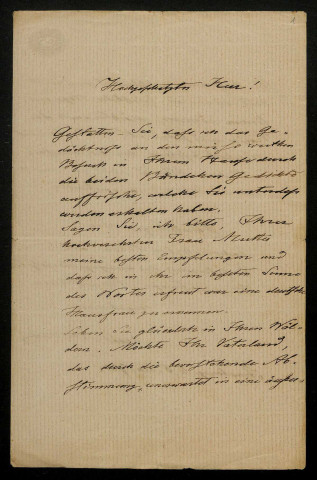 Hochgeschätzter Herr!
Gestatten Sie, daß ich das Ge-
dächtniß an den mir so werthen
Besuch in Ihrem Hause durch
die beiden Bändchen Gedichte
auffrische, welche Sie unterdeß
werden erhalten haben.
Sagen Sie, ich bitte, Ihrer
hochverehrten Frau
meine besten Empfehlungen und
daß ich in ihr im besten Sinne
des Wortes erfreut war eine deutsche
Hausfrau zu
Leben Sie glücklich in Ihren Wäl-
dern. Möchte Ihr Vaterland,
das durch die bevorstehende Ab-
stimmung, unerwartet in eine